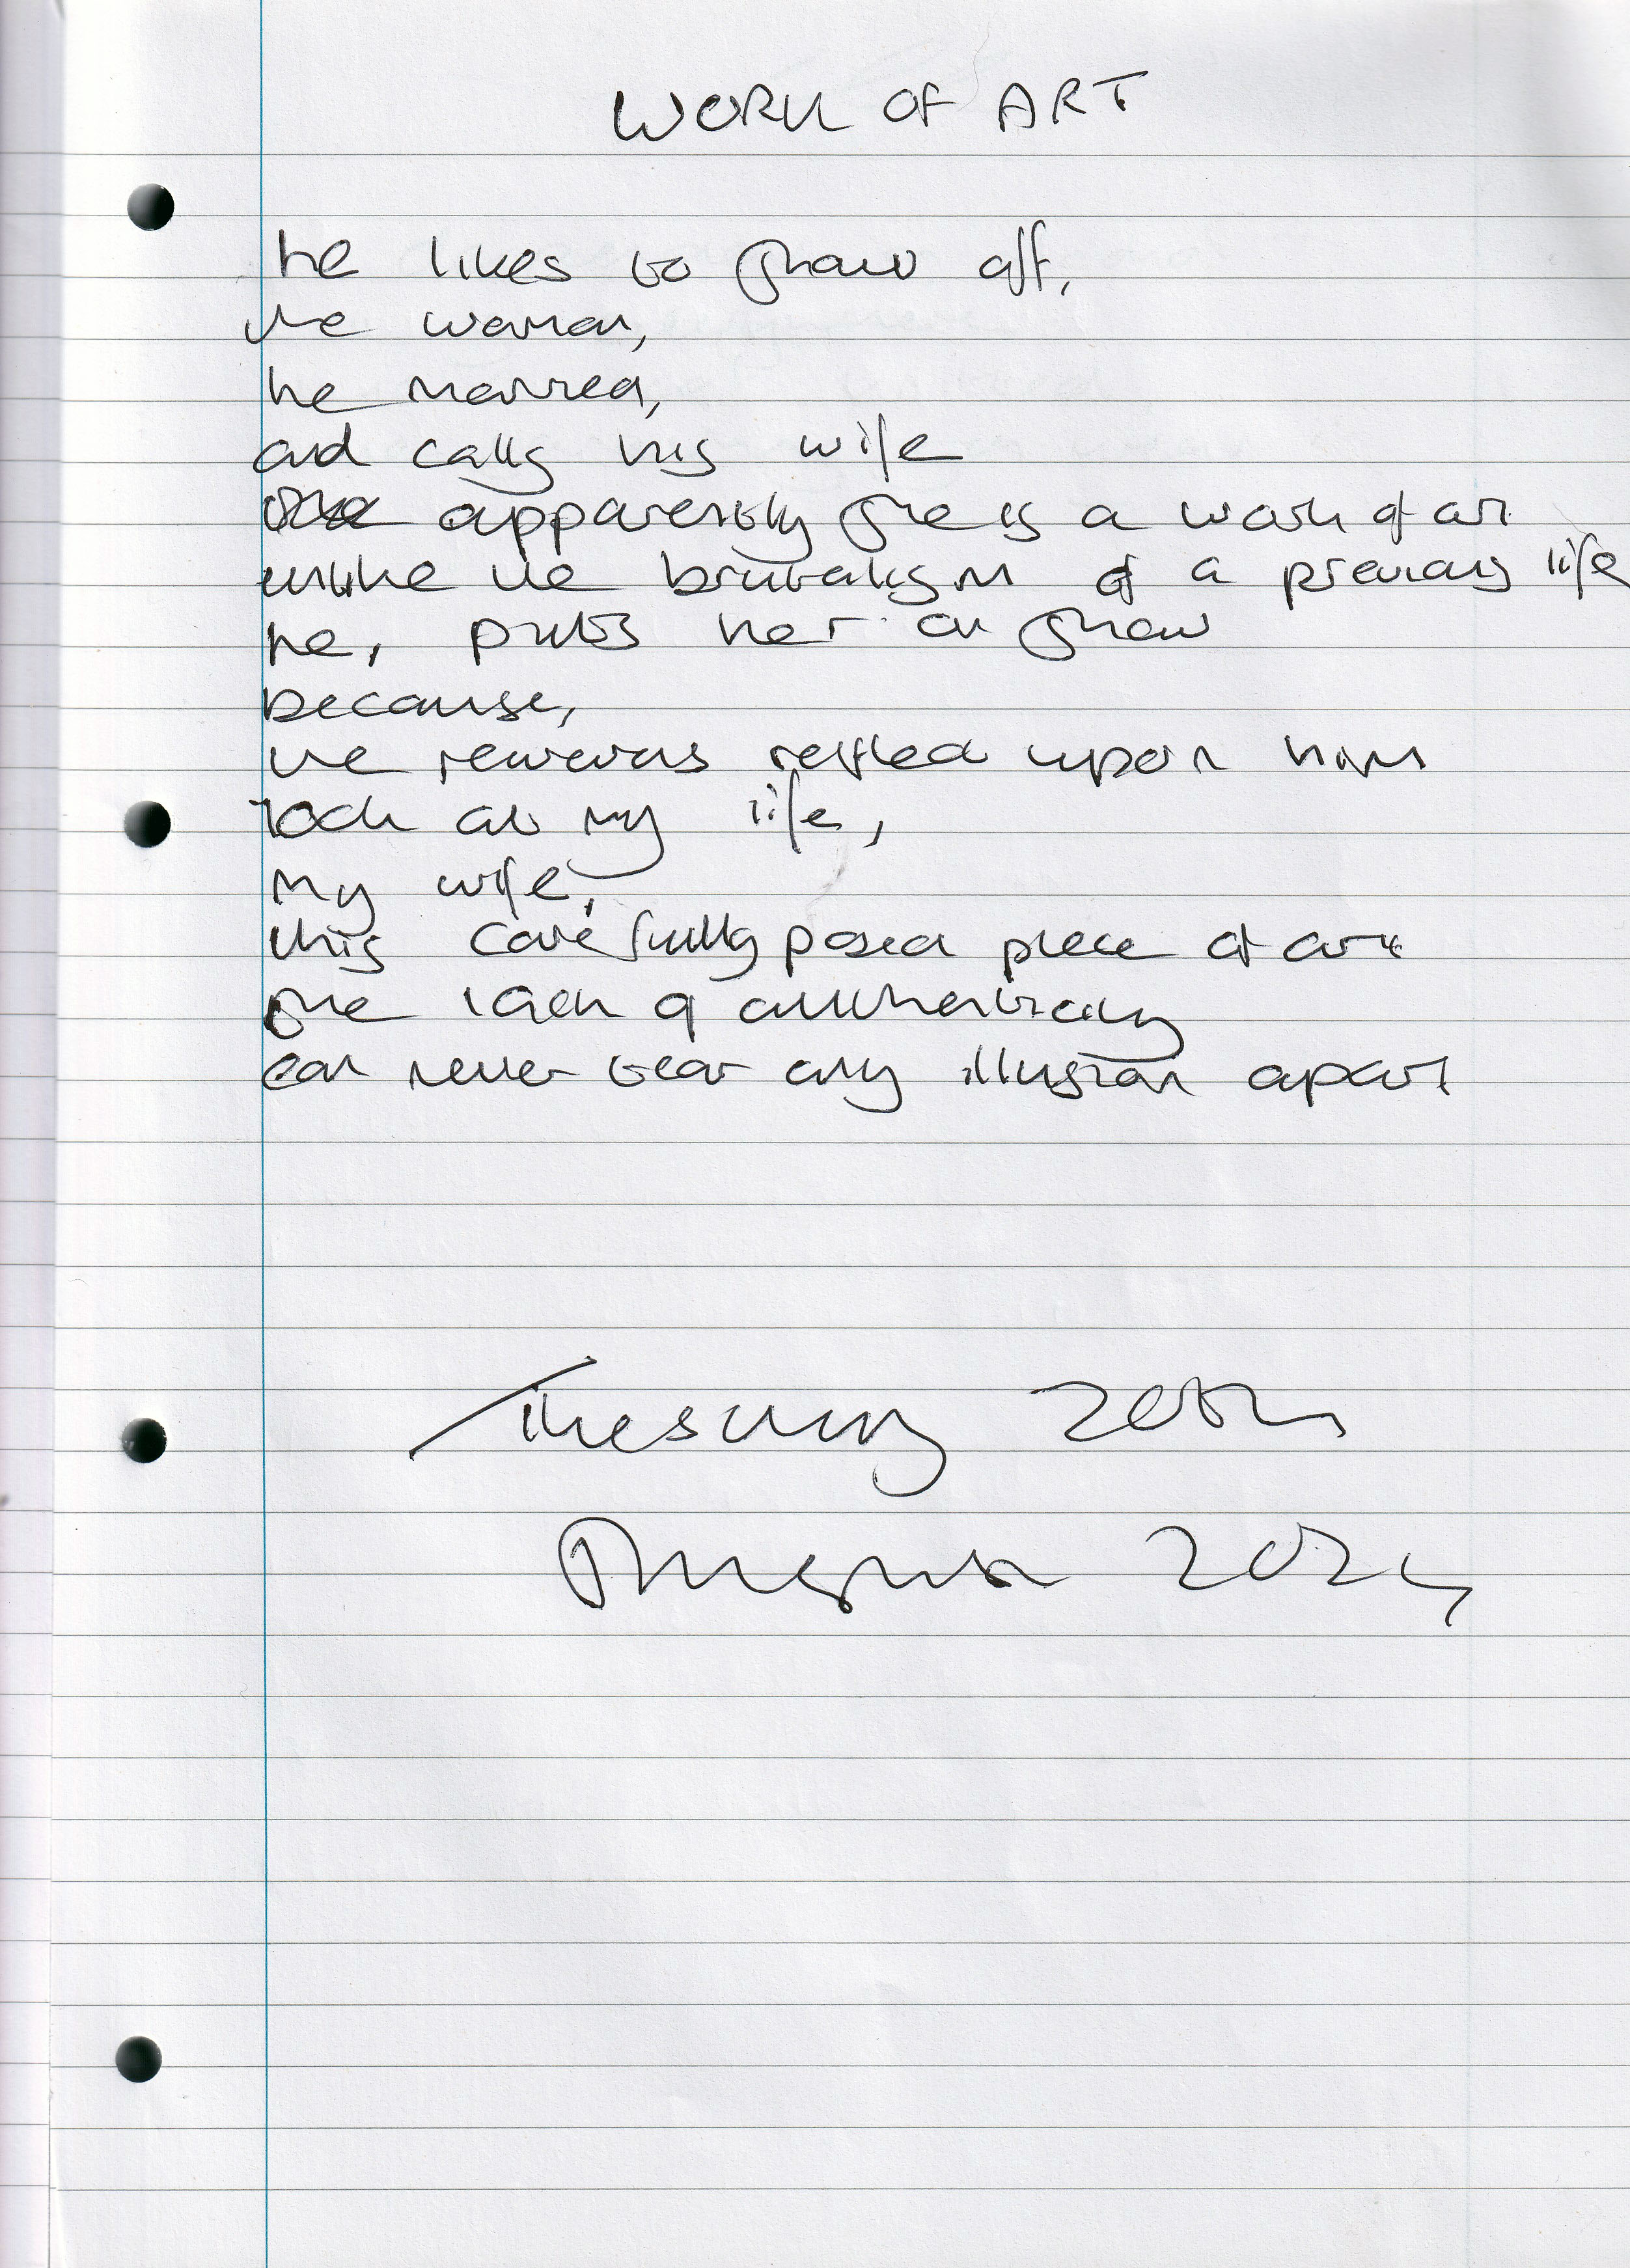 WORK OF ART
he likes to show off,
the woman,
he married,
and calls his wife
apparently she is a work of art
unlike the brutalism of a previous life
he, puts her on show
because,
the rewards reflled upon him
look at my life,
my wife,
this carefully posed piece of art
one lack of authenticity
can never tear any illusion apart
Tuesday 20th
August 2024